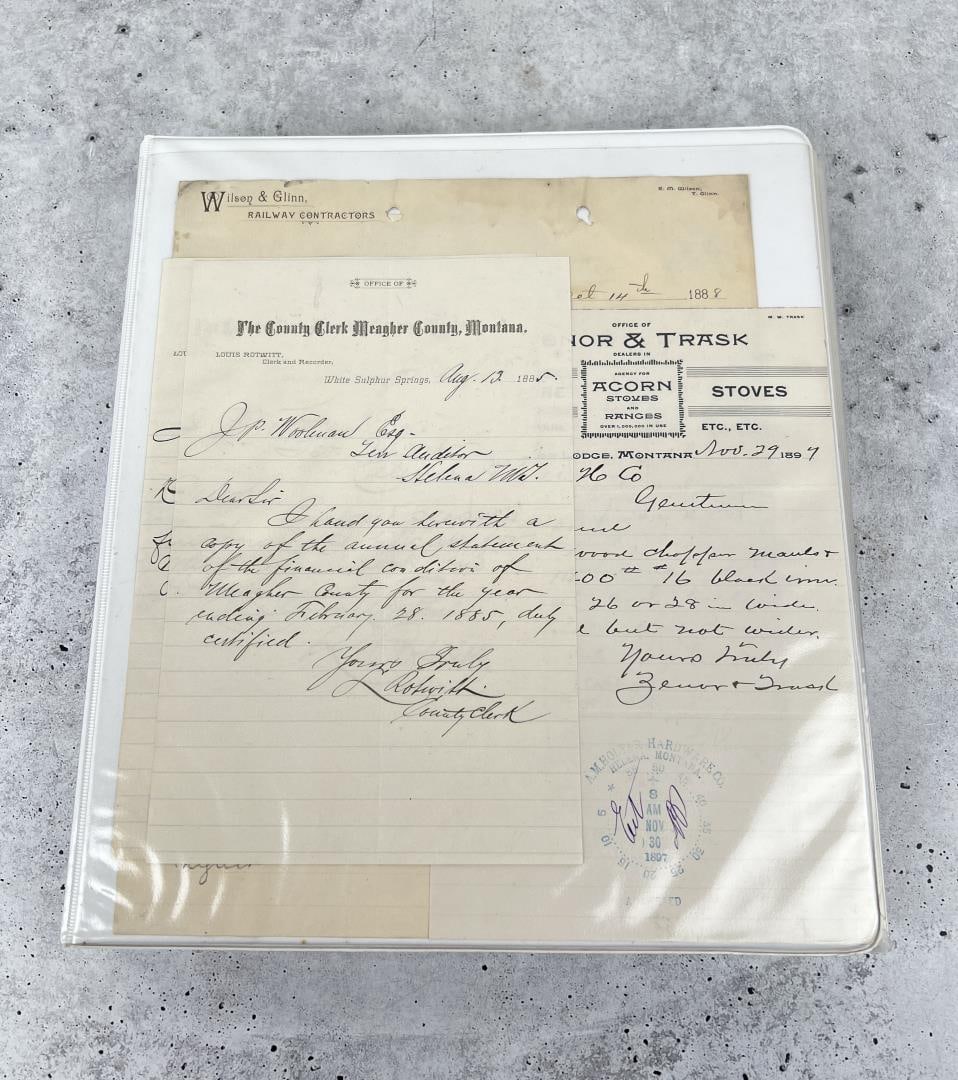 Wilson & Glinn,
RAILWAY CONTRACTORS
S. M. Wilson,
T. Glinn.
14th 1888
OFFICE OF
The County Clerk Meagher County, Montana.
LOU
LOUIS ROTWITT,
Clerk and Recorder.
White Sulphur Springs, Aug. 13. 1885.
J. P. Woolman Esq-
Terr Auditor
Helena M.T.
Dear Sir
I hand you herewith a
copy of the annual statement
of the financial condition of
Meagher County for the year
ending February. 28. 1885, duly
certified.
Yours Truly
L Rotwitt.
County Clerk
M. W. TRASK
OFFICE OF
NOR & TRASK
DEALERS IN
AGENCY FOR
ACORN
STOVES
AND
RANGES
OVER 1,000,000 IN USE
STOVES
ETC., ETC.
ODGE, MONTANA Nov. 29 1897
H Co
Gentlemen
wood chopper mauls &
00 # # 16 black iron.
26 or 28 in wide.
but not wider.
Yours Truly
Zenor & Trask
A.M. HOLTER HARDWARE CO.
HELENA, MONTANA.
8
AM
NOV
30
1897